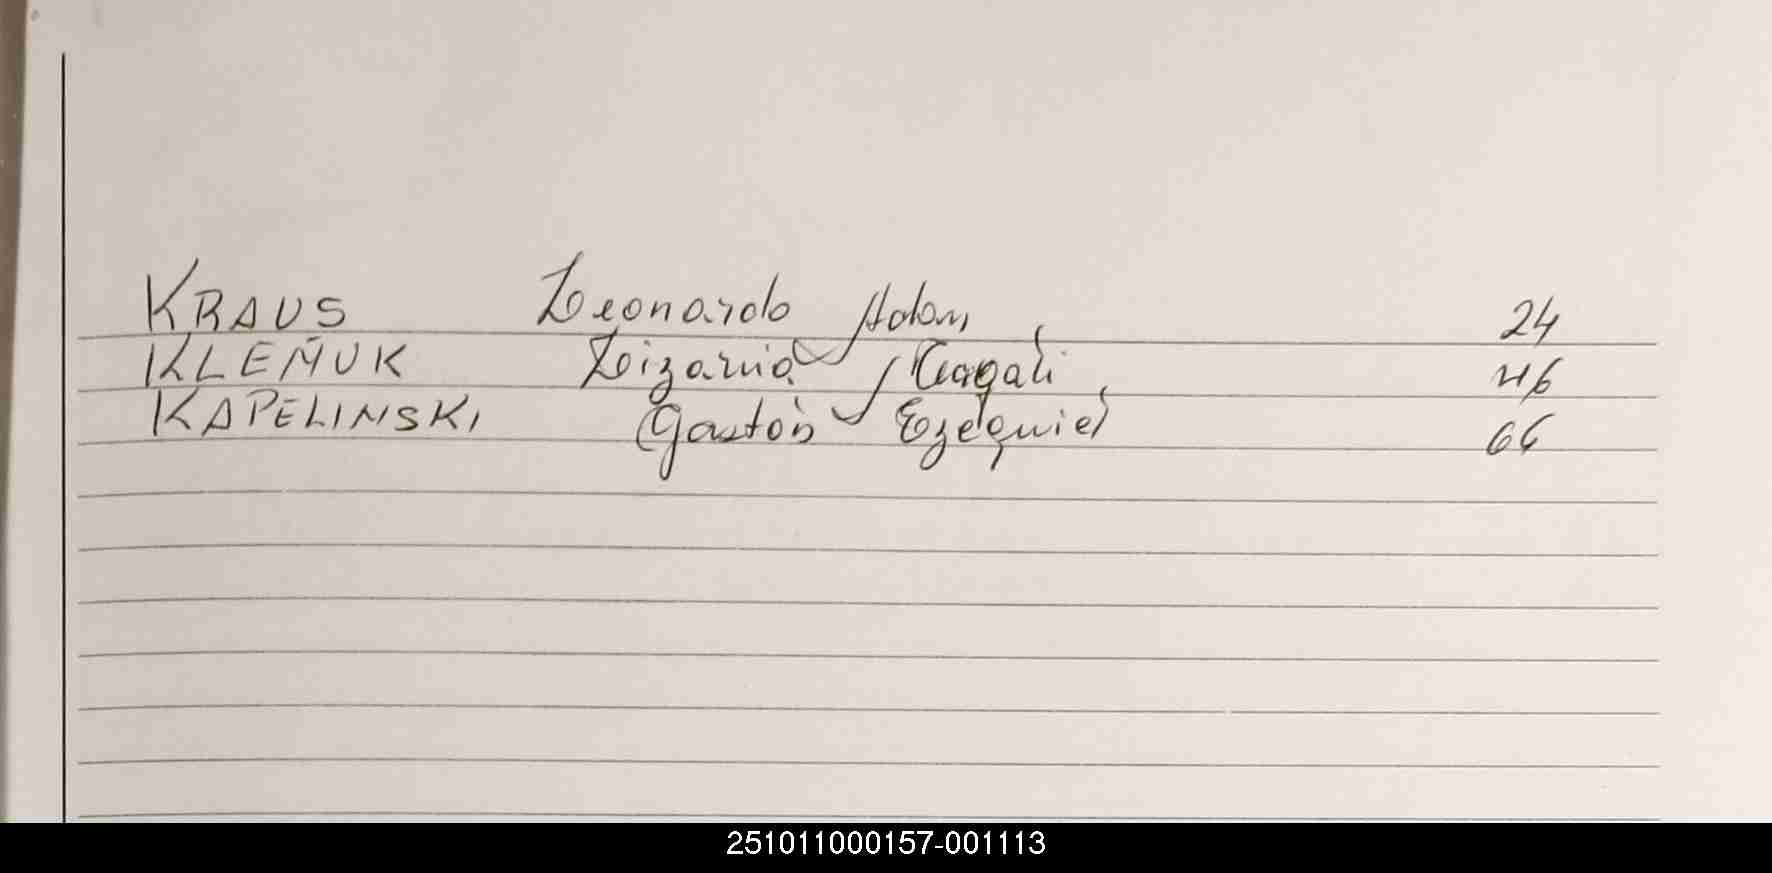 KRAUS Leonardo Adan 24
KLEÑUK Magali 46
KAPELINSKI Gastón Ezequiel 66
251011000157-001113